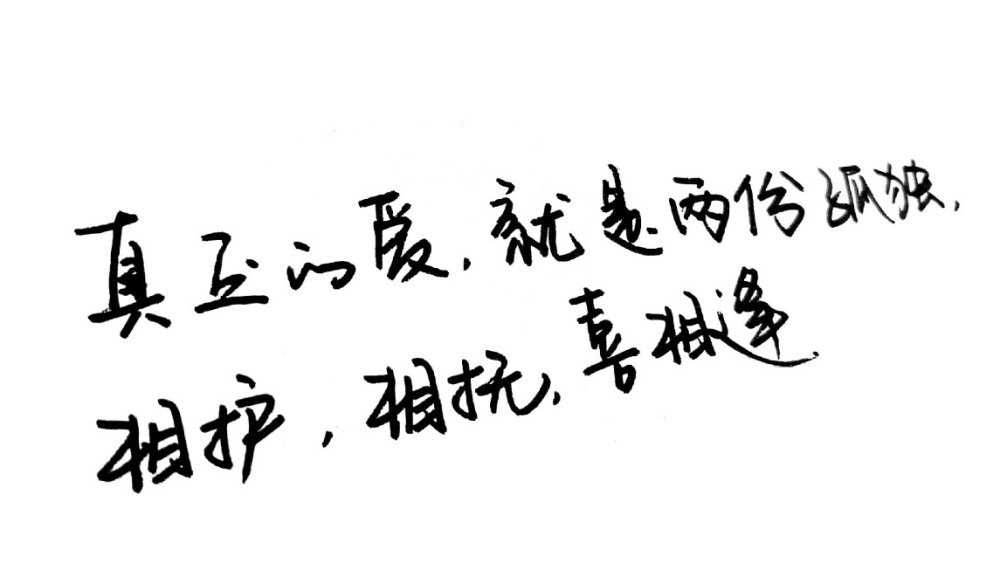 真正的爱,就是两份孤独,
相护,相抚,喜相逢